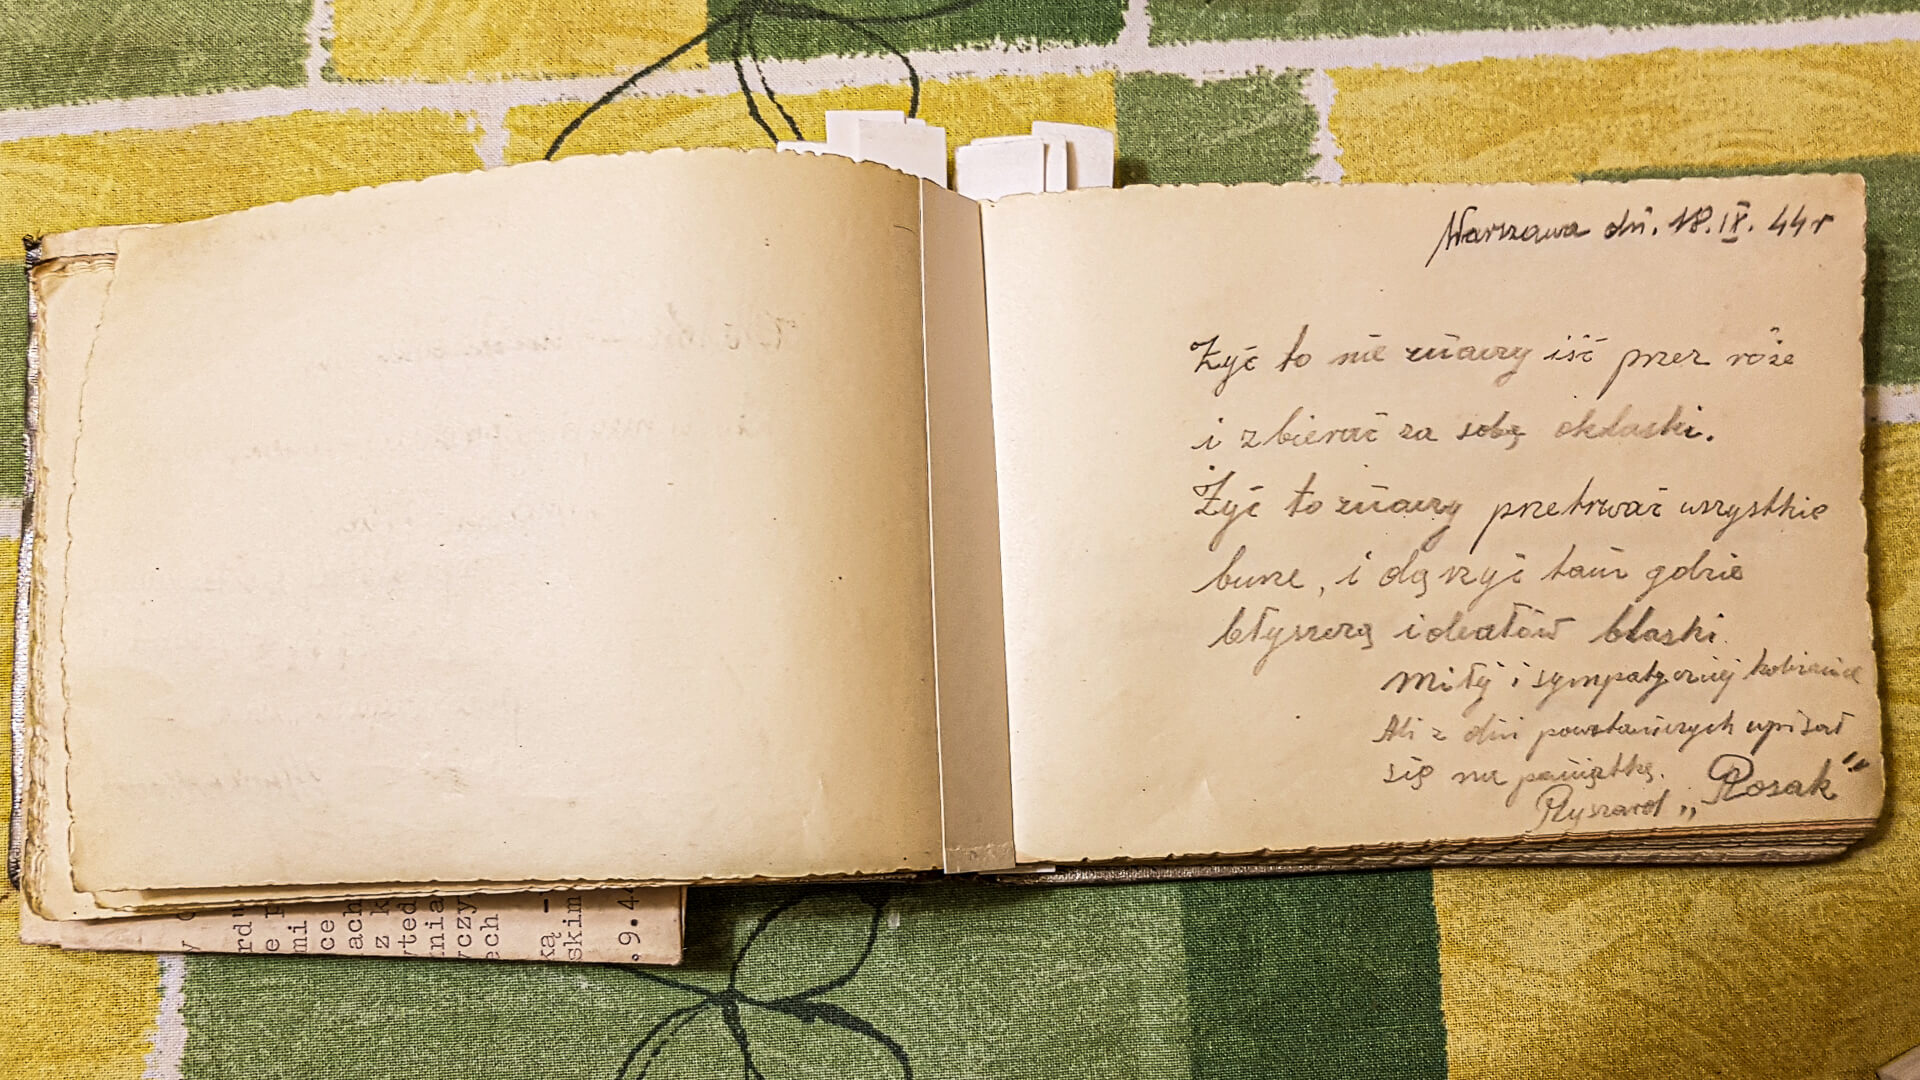 Warszawa dń. 18.IX. 44 r
Żyć to nie znaczy iść przez róże
i zbierać za sobą oklaski.
Żyć to znaczy przetrwać wszystkie
burze, i dążyć tam gdzie
błyszczą ideałów blaski.
Miłej i sympatycznej
Ali z dni powstańczych wpisał
się na pamiątkę.
Ryszard „Rosak"
y
rd
e
mi
ce
ach
z k
yted
nia
yczy
ech
ką -
skim
.9.4